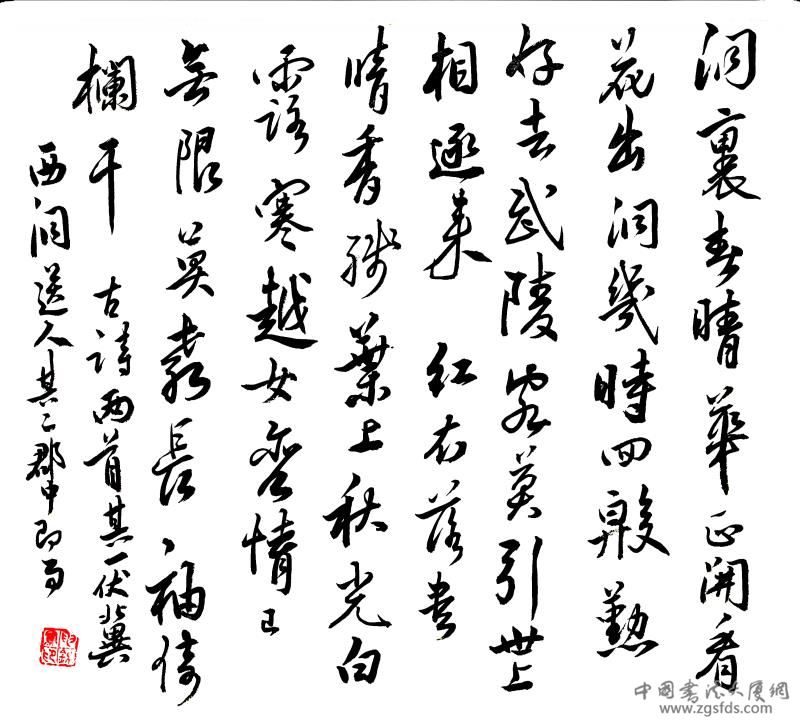 洞裏春晴華正開看
花出洞幾時回殷勤
好去武陵客莫引世上
相逐来 红衣落尽
晴香残葉上秋光白
露寒越女含情已
無限莫教長袖倚
欄干 古詩两首其一伏翼
西洞送人其二郡中即事
中国書法大厦網
www.zgsfds.com